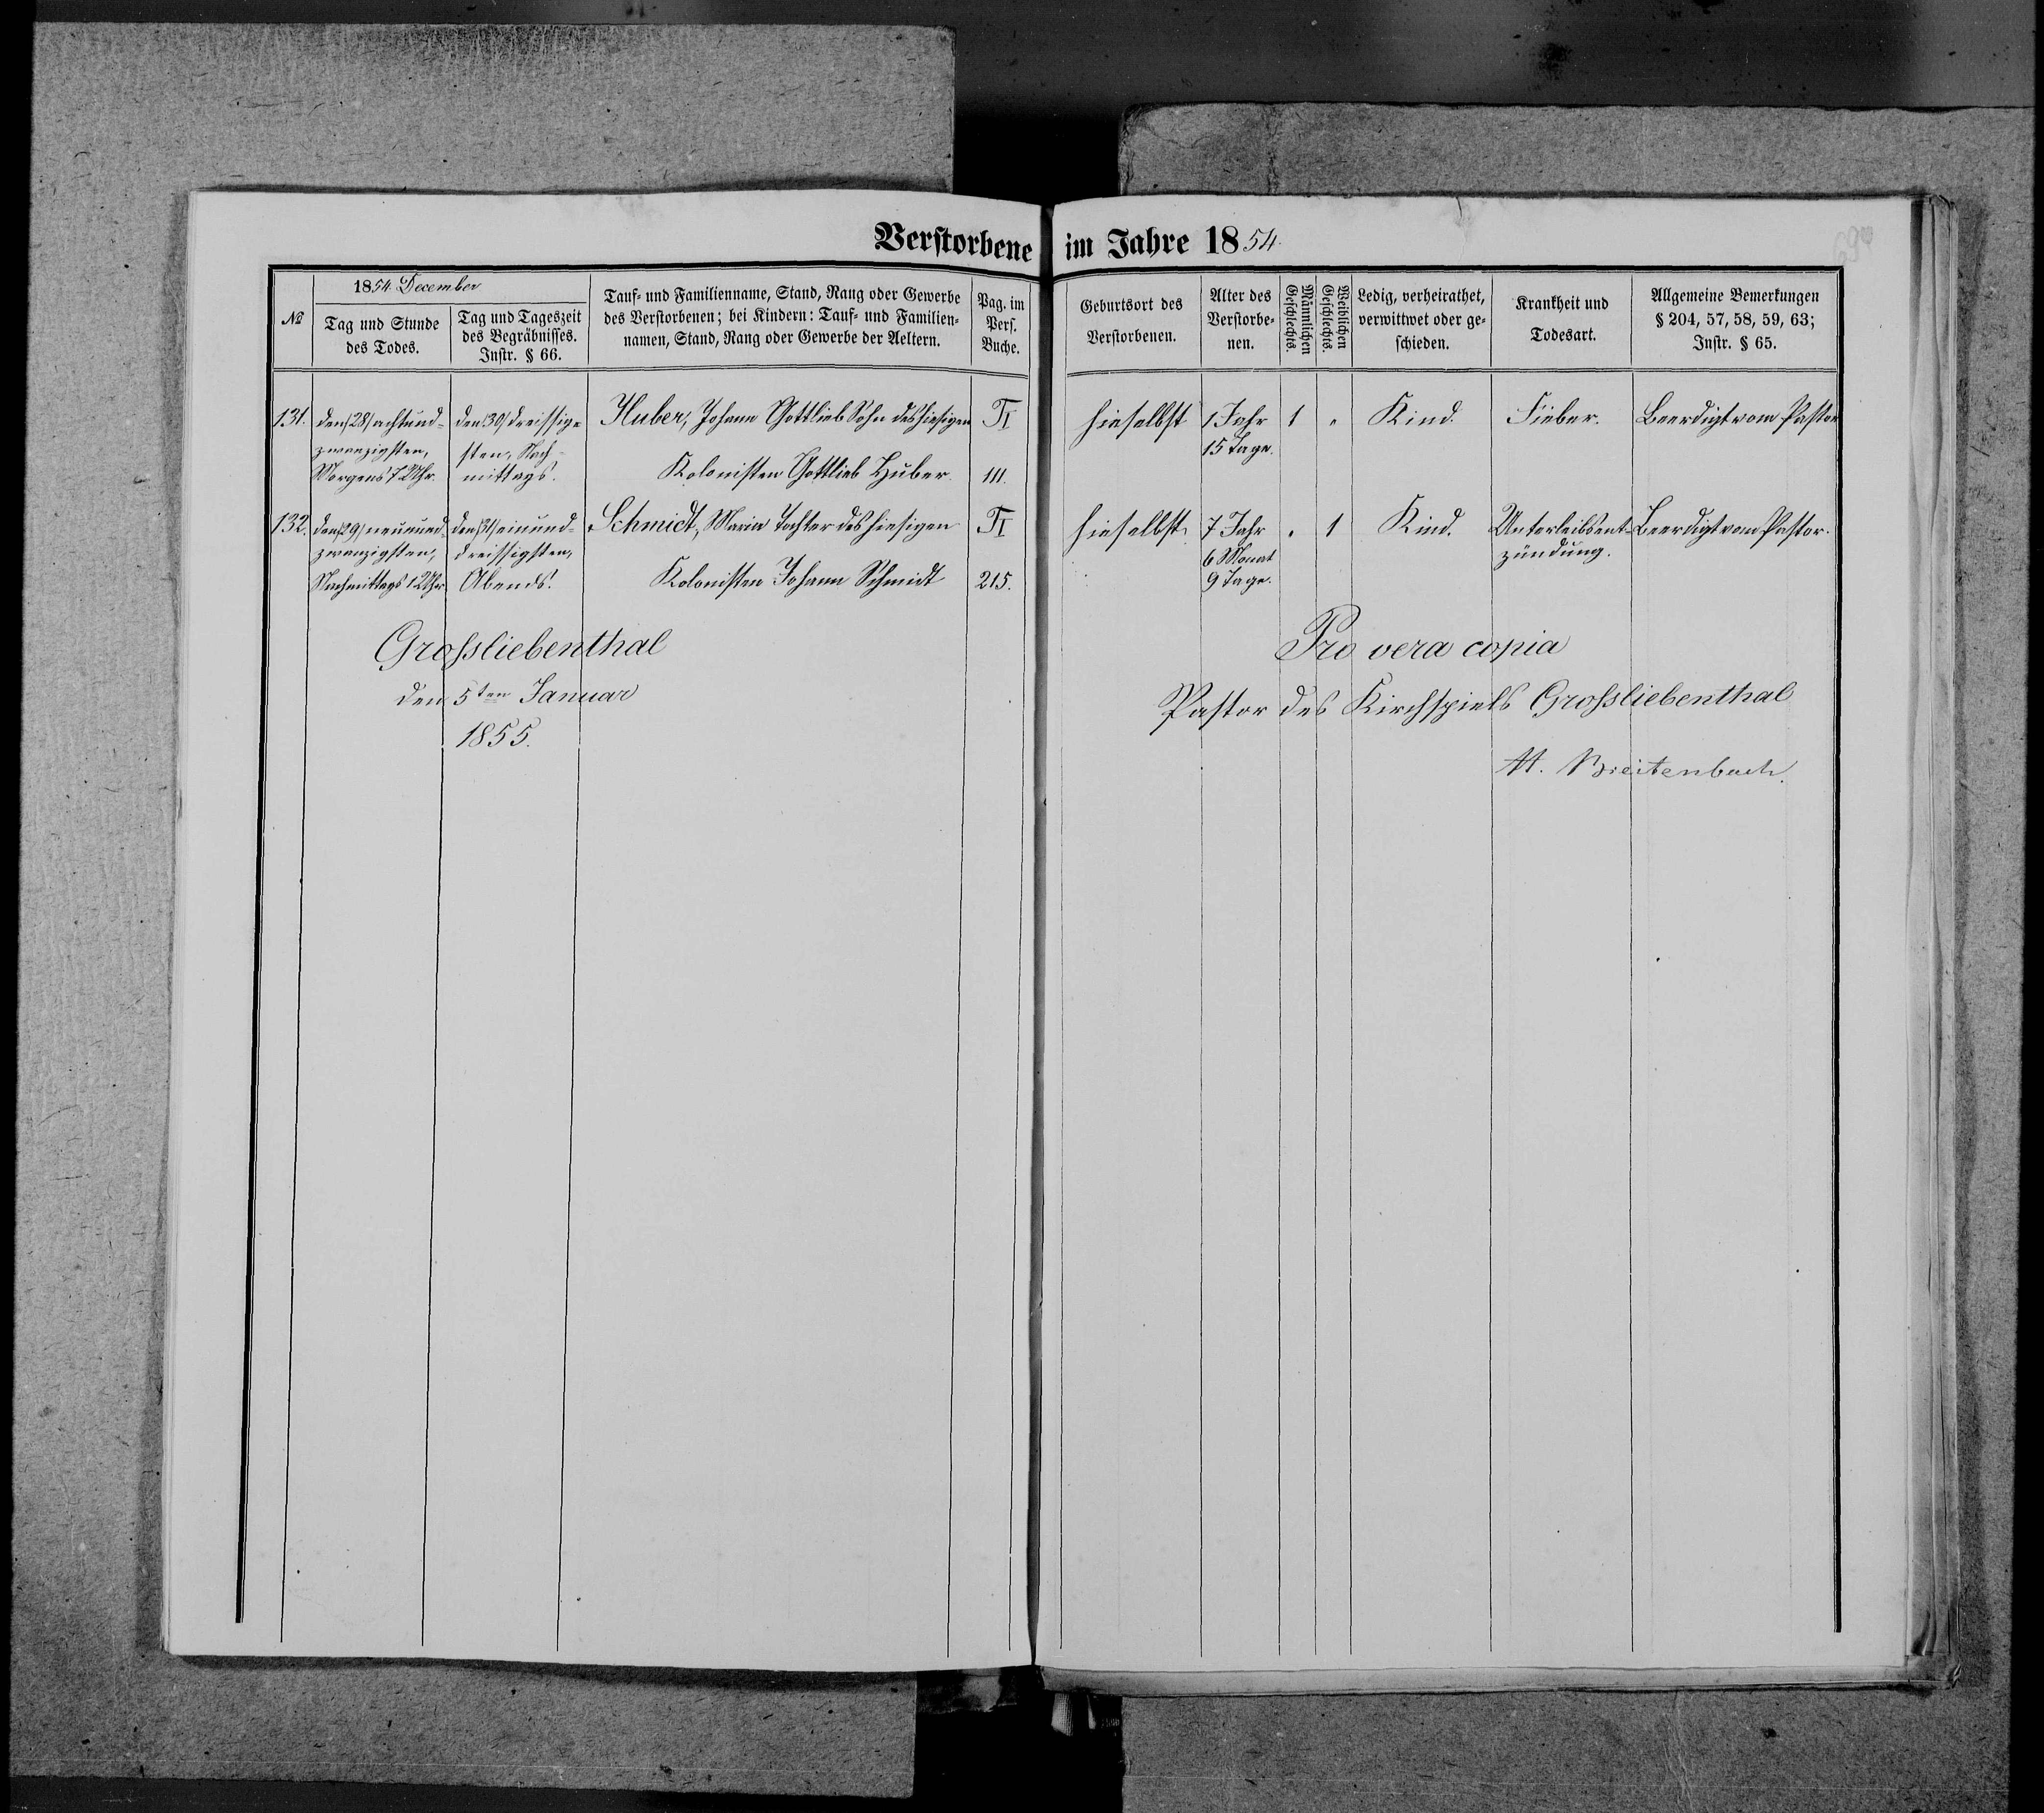 Verstorbene im Jahre 1854.
№
1854 December
Tag und Stunde
des Todes.
Tag und Tageszeit
des Begräbnisses.
Instr. § 66.
Tauf- und Familienname, Stand, Rang oder Gewerbe
des Verstorbenen; bei Kindern: Tauf- und Familien-
namen, Stand, Rang oder Gewerbe der Aeltern.
Pag. im
Pers.
Buche.
Geburtsort des
Verstorbenen.
Alter des
Verstorbe-
nen.
Männlichen
Geschlechts.
Weiblichen
Geschlechts.
Ledig, verheirathet,
verwittwet oder ge-
schieden.
Krankheit und
Todesart.
Allgemeine Bemerkungen
§ 204, 57, 58, 59, 63;
Instr. § 65.
131.
den /28/ achtund-
zwanzigsten,
Morgens 7 Uhr.
den /30/ dreissig-
sten, Nach-
mittags.
Huber, Johann Gottlieb Sohn des hiesigen
Kolonisten Gottlieb Huber
111.
hieselbst
1 Jahr
15 Tage.
1
"
Kind.
Fieber.
Beerdigt vom Pastor
132.
den /29/ neunund-
zwanzigsten,
Nachmittags 12 Uhr
den /31/ einund-
dreissigsten,
Abends.
Schmidt, Maria Tochter des hiesigen
Kolonisten Johann Schmidt
215.
hieselbst.
7 Jahr
6 Monat
9 Tage.
"
1
Kind.
Unterleibsent-
zündung.
Beerdigt vom Pastor.
Grossliebenthal
den 5ten Januar
1855.
Pro vera copia
Pastor des Kirchspiels Grossliebenthal
Breitenbach.